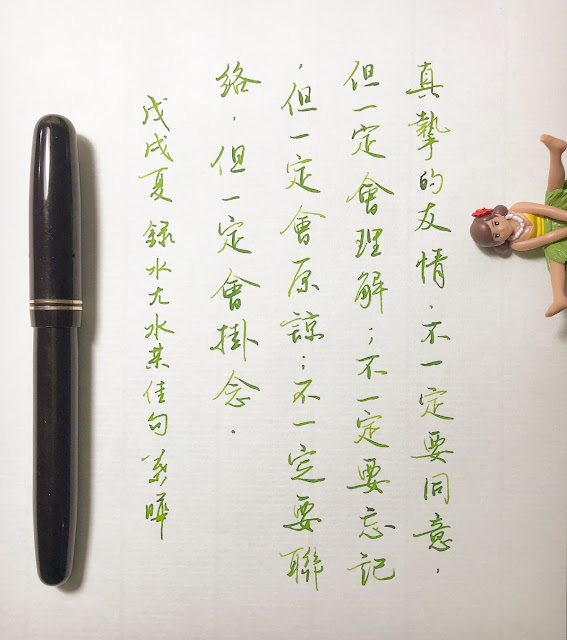 真摯的友情，不一定要同意，
但一定會理解；不一定要忘記
，但一定會原諒；不一定要聯
絡，但一定會掛念．
戊戌夏 錄水尢水某佳句